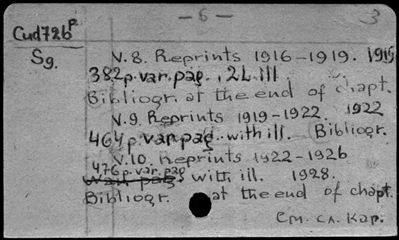 - 6 -
3
Cud72bP
Sg.
V.8. Reprints 1916-1919. 1919
382p. var. pag., 2L ill.
Bibliogr. at the end of chapt.
V.9. Reprints 1919-1922. 1922
464p. var. pag. with ill. Bibliogr.
V.10. Reprints 1922-1926
476p. var. pag
var. pag. with ill. 1928.
Bibliogr. at the end of chapt.
См. сл. кар.